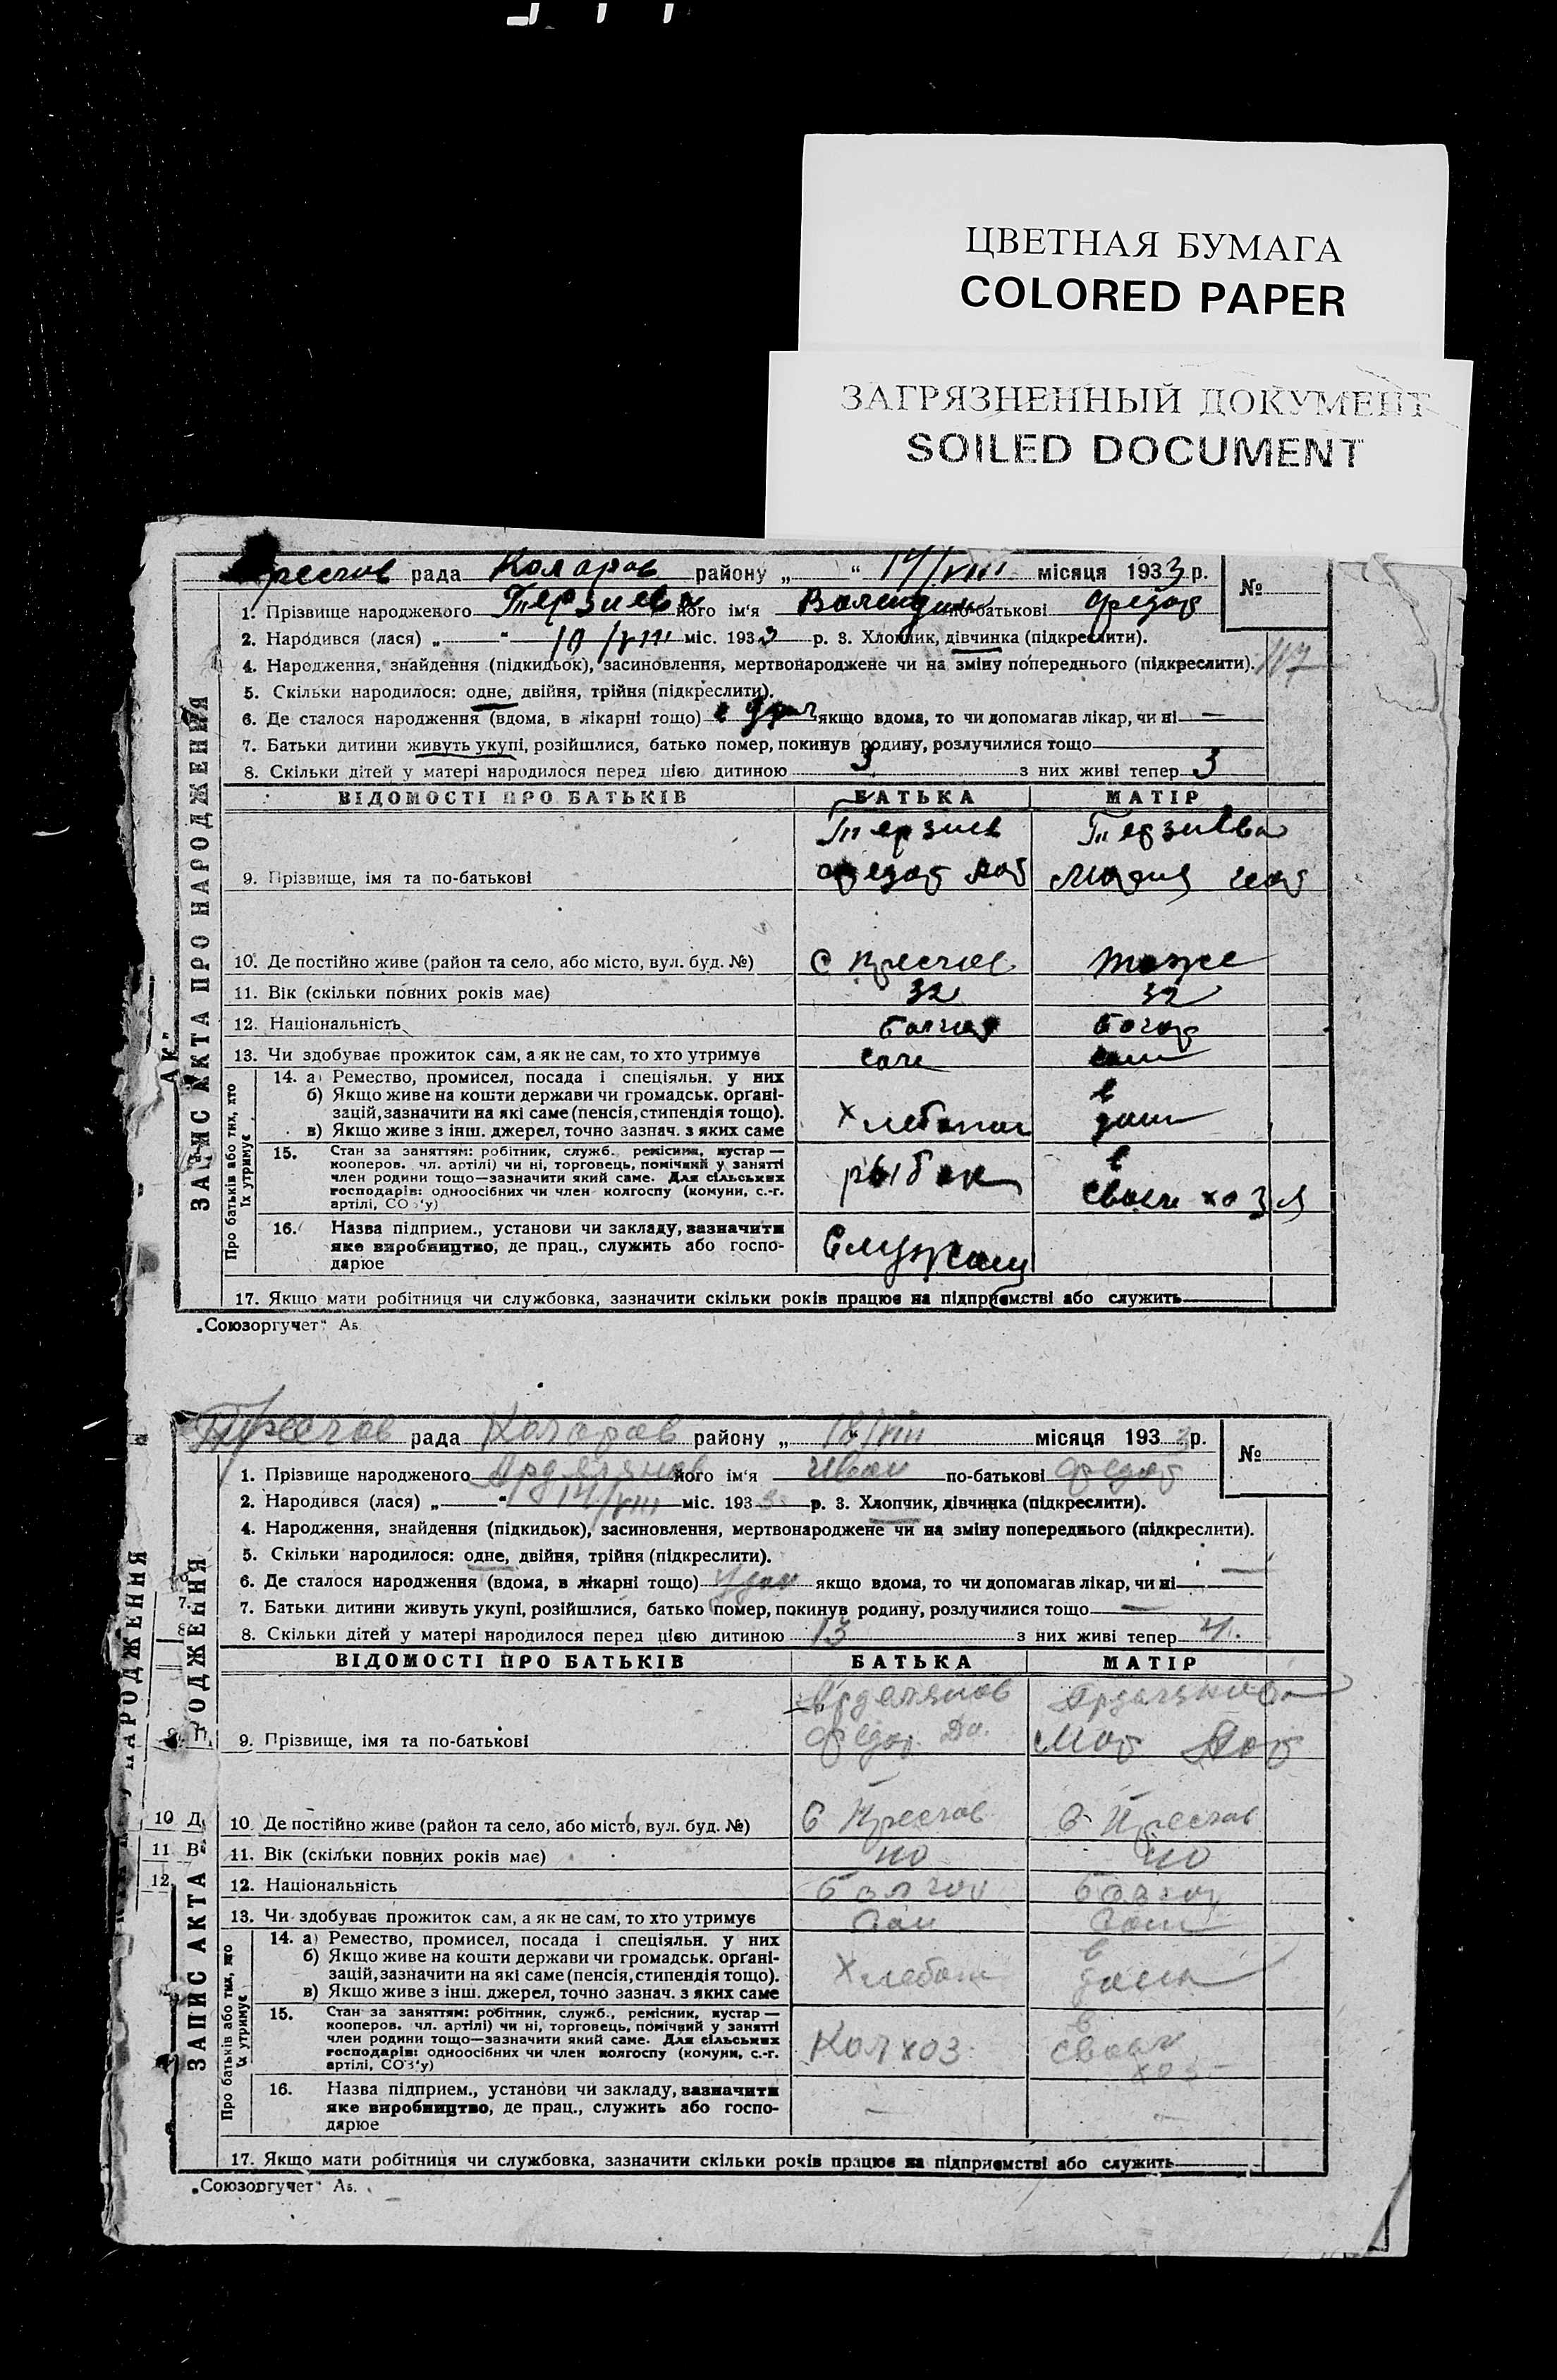 ЦВЕТНАЯ БУМАГА
COLORED PAPER
ЗАГРЯЗНЕННЫЙ ДОКУМЕНТ
SOILED DOCUMENT
рада Коларов району „ “ 14/VIII місяця 1933 р. №
1. Прізвище народженого Терзиева його ім‘я по-батькові Федот
2. Народився (лася) „ “ 10/VIII міс. 1933 р. 3. Хлопчик, дівчинка (підкреслити).
4. Народження, знайдення (підкидьок), засиновлення, мертвонароджене чи на зміну попереднього (підкреслити).
5. Скільки народилося: одне, двійня, трійня (підкреслити).
6. Де сталося народження (вдома, в лікарні тощо) якщо вдома, то чи допомагав лікар, чи ні —
7. Батьки дитини живуть укупі, розійшлися, батько помер, покинув родину, розлучилися тощо
8. Скільки дітей у матері народилося перед цією дитиною 3 з них живі тепер 3
ВІДОМОСТІ ПРО БАТЬКІВ БАТЬКА МАТІР
Терзиев Терзиева
9. Прізвище, імя та по-батькові Федот Мария
10. Де постійно живе (район та село, або місто, вул. буд. №) С Преслав тоже
11. Вік (скільки повних років має) 32 32
12. Національність болгар
13. Чи здобуває прожиток сам, а як не сам, то хто утримує сам сам
14. а) Ремество, промисел, посада і спеціяльн. у них
б) Якщо живе на кошти держави чи громадськ. органі-
зацій, зазначити на які саме (пенсія, стипендія тощо).
в) Якщо живе з інш. джерел, точно зазнач. з яких саме Хлебопаш в дом
15. Стан за заняттям: робітник, служб., ремісник, кустар —
кооперов. чл. артілі) чи ні, торговець, помічний у занятті
член родини тощо—зазначити який саме. Для сільських
господарів: одноосібних чи член колгоспу (комуни, с.-г.
артілі, СОЗ‘у) рыбак в своем хозя
16. Назва підприєм., установи чи закладу, зазначити
яке виробництво, де прац., служить або госпо-
дарює Служащ
17. Якщо мати робітниця чи службовка, зазначити скільки років працює на підприємстві або служить
„Союзоргучет“ А5.
ЗАПИС АКТА ПРО НАРОДЖЕННЯ
Про батьків або тих, хто їх утримує
Преслав рада Коларов району „ “ 18/VIII місяця 1933 р. №
1. Прізвище народженого Ардалянов його ім‘я Иван по-батькові Федот
2. Народився (лася) „ “ 14/VIII міс. 193 р. 3. Хлопчик, дівчинка (підкреслити).
4. Народження, знайдення (підкидьок), засиновлення, мертвонароджене чи на зміну попереднього (підкреслити).
5. Скільки народилося: одне, двійня, трійня (підкреслити).
6. Де сталося народження (вдома, в лікарні тощо) якщо вдома, то чи допомагав лікар, чи ні —
7. Батьки дитини живуть укупі, розійшлися, батько помер, покинув родину, розлучилися тощо —
8. Скільки дітей у матері народилося перед цією дитиною 13 з них живі тепер 4.
ВІДОМОСТІ ПРО БАТЬКІВ БАТЬКА МАТІР
Ардалянов Ардалянова
9. Прізвище, імя та по-батькові Федот
10. Де постійно живе (район та село, або місто, вул. буд. №) С Преслав С Преслав
11. Вік (скільки повних років має) 40 40
12. Національність Болгар Болгар
13. Чи здобуває прожиток сам, а як не сам, то хто утримує Сам Сам
14. а) Ремество, промисел, посада і спеціяльн. у них
б) Якщо живе на кошти держави чи громадськ. органі-
зацій, зазначити на які саме (пенсія, стипендія тощо).
в) Якщо живе з інш. джерел, точно зазнач. з яких саме Хлебопаш в дом
15. Стан за заняттям: робітник, служб., ремісник, кустар —
кооперов. чл. артілі) чи ні, торговець, помічний у занятті
член родини тощо—зазначити який саме. Для сільських
господарів: одноосібних чи член колгоспу (комуни, с.-г.
артілі, СОЗ‘у) Колхоз в своем хоз
16. Назва підприєм., установи чи закладу, зазначити
яке виробництво, де прац., служить або госпо-
дарює — —
17. Якщо мати робітниця чи службовка, зазначити скільки років працює на підприємстві або служить
„Союзоргучет“ А5.
ЗАПИС АКТА
Про батьків або тих, що їх утримує